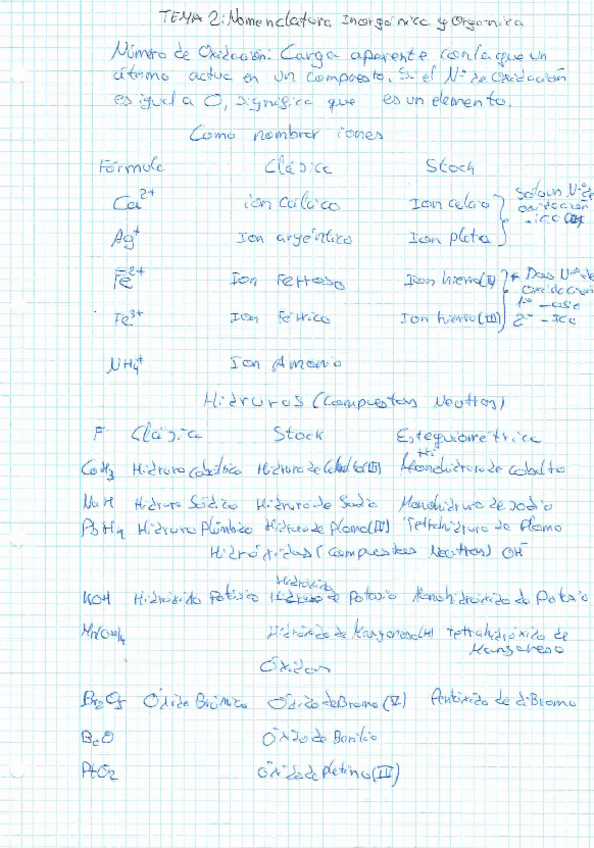 TEMA 2: Nomenclatura Inorgánica y Orgánica
Número de Oxidación: Carga aparente con la que un
átomo actua en un compuesto. Si el Nº de Oxidación
es igual a 0, significa que es un elemento.
Como nombrar iones
Fórmula Clásica Stock
Ca2+ ion Cálcico Ion calcio Solo un Nº de oxidación -ico
Ag+ Ion argéntico Ion plata
Fe2+ Ion Ferroso Ion hierro(II) * Dos Nº de Oxidación
1º -oso
Fe3+ Ion Férrico Ion hierro(III) 2º -Ico
NH4+ Ion Amonio
Hidruros (Compuestos Neutros)
F Clásica Stock Estequiométrica
CoH3 Hidruro Cobáltico Hidruro de Cobalto(III) hidruro de Cobalto
NaH Hidruro Sódico Hidruro de Sodio Monohidruro de sodio
PbH4 Hidruro Plúmbico Hidruro de Plomo(IV) Tetrahidruro de Plomo
Hidróxidos (Compuestos Neutros) OH-
KOH Hidróxido Potásico Hidróxido de Potasio Monohidróxido de Potasio
Mn(OH)4 Hidróxido de Manganeso(IV) Tetrahidróxido de
Manganeso
Óxidos
Br2O5 Óxido Brómico Óxido de Bromo (V) Pentóxido de diBromo
BeO Óxido de Berilio
PtO2 Óxido de Platino(IV)